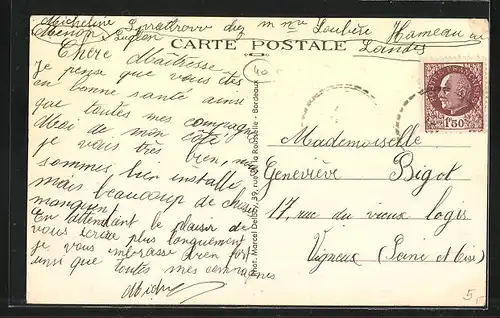 Micheline chez mme Loubère Hameau de
Menon Luglon Landes
CARTE POSTALE
40
Chère Maîtresse
Je pense que vous êtes
en bonne santé ainsi
que toutes mes compagnes
Moi de mon côté
je vais très bien, nous
sommes bien installés
mais beaucoup de choses
manquent
En attendant le plaisir de
vous écrire plus longuement
je vous embrasse bien fort
ainsi que toutes mes compagnes
Phot. Marcel Delboy, 39, rue de la Rousselle - Bordeaux
1F50
Mademoiselle
Geneviève Bigot
17, rue du vieux logis
Vigneux (Seine et Oise)
5,